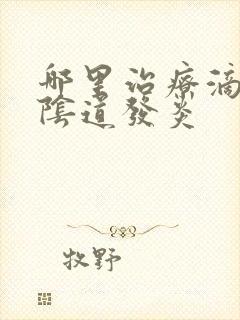 哪里治療滴
陰道發炎
牧野